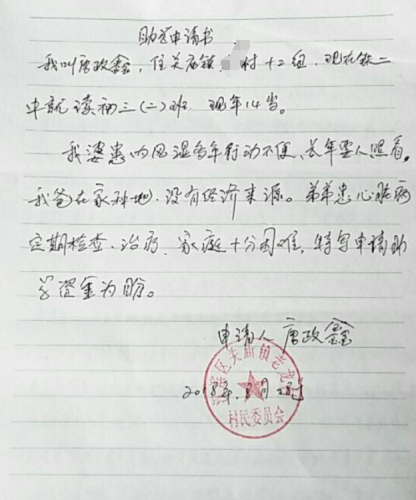 助学申请书
我叫唐政鑫，住关店镇 村十二组，现在铁二
中就读初三（二）班，现年14岁。
我婆患内风湿多年行动不便，长年要人照看。
我爸在家种地，没有经济来源。弟弟患心脏病
定期检查、治疗，家庭十分困难，特写申请助
学资金为盼。
申请人 唐政鑫
2018年 月
村民委员会